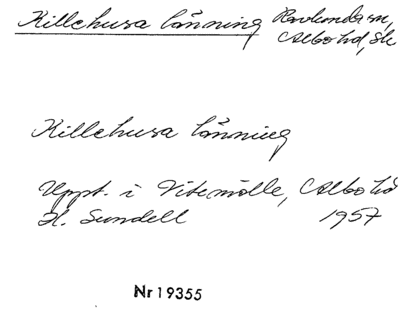 Killehusa lånning Ravlunda sn,
Albo hd, Sk
Killehusa lånning
Uppt. i Vitemölle, Albo hd
H. Sundell 1957
Nr 19355